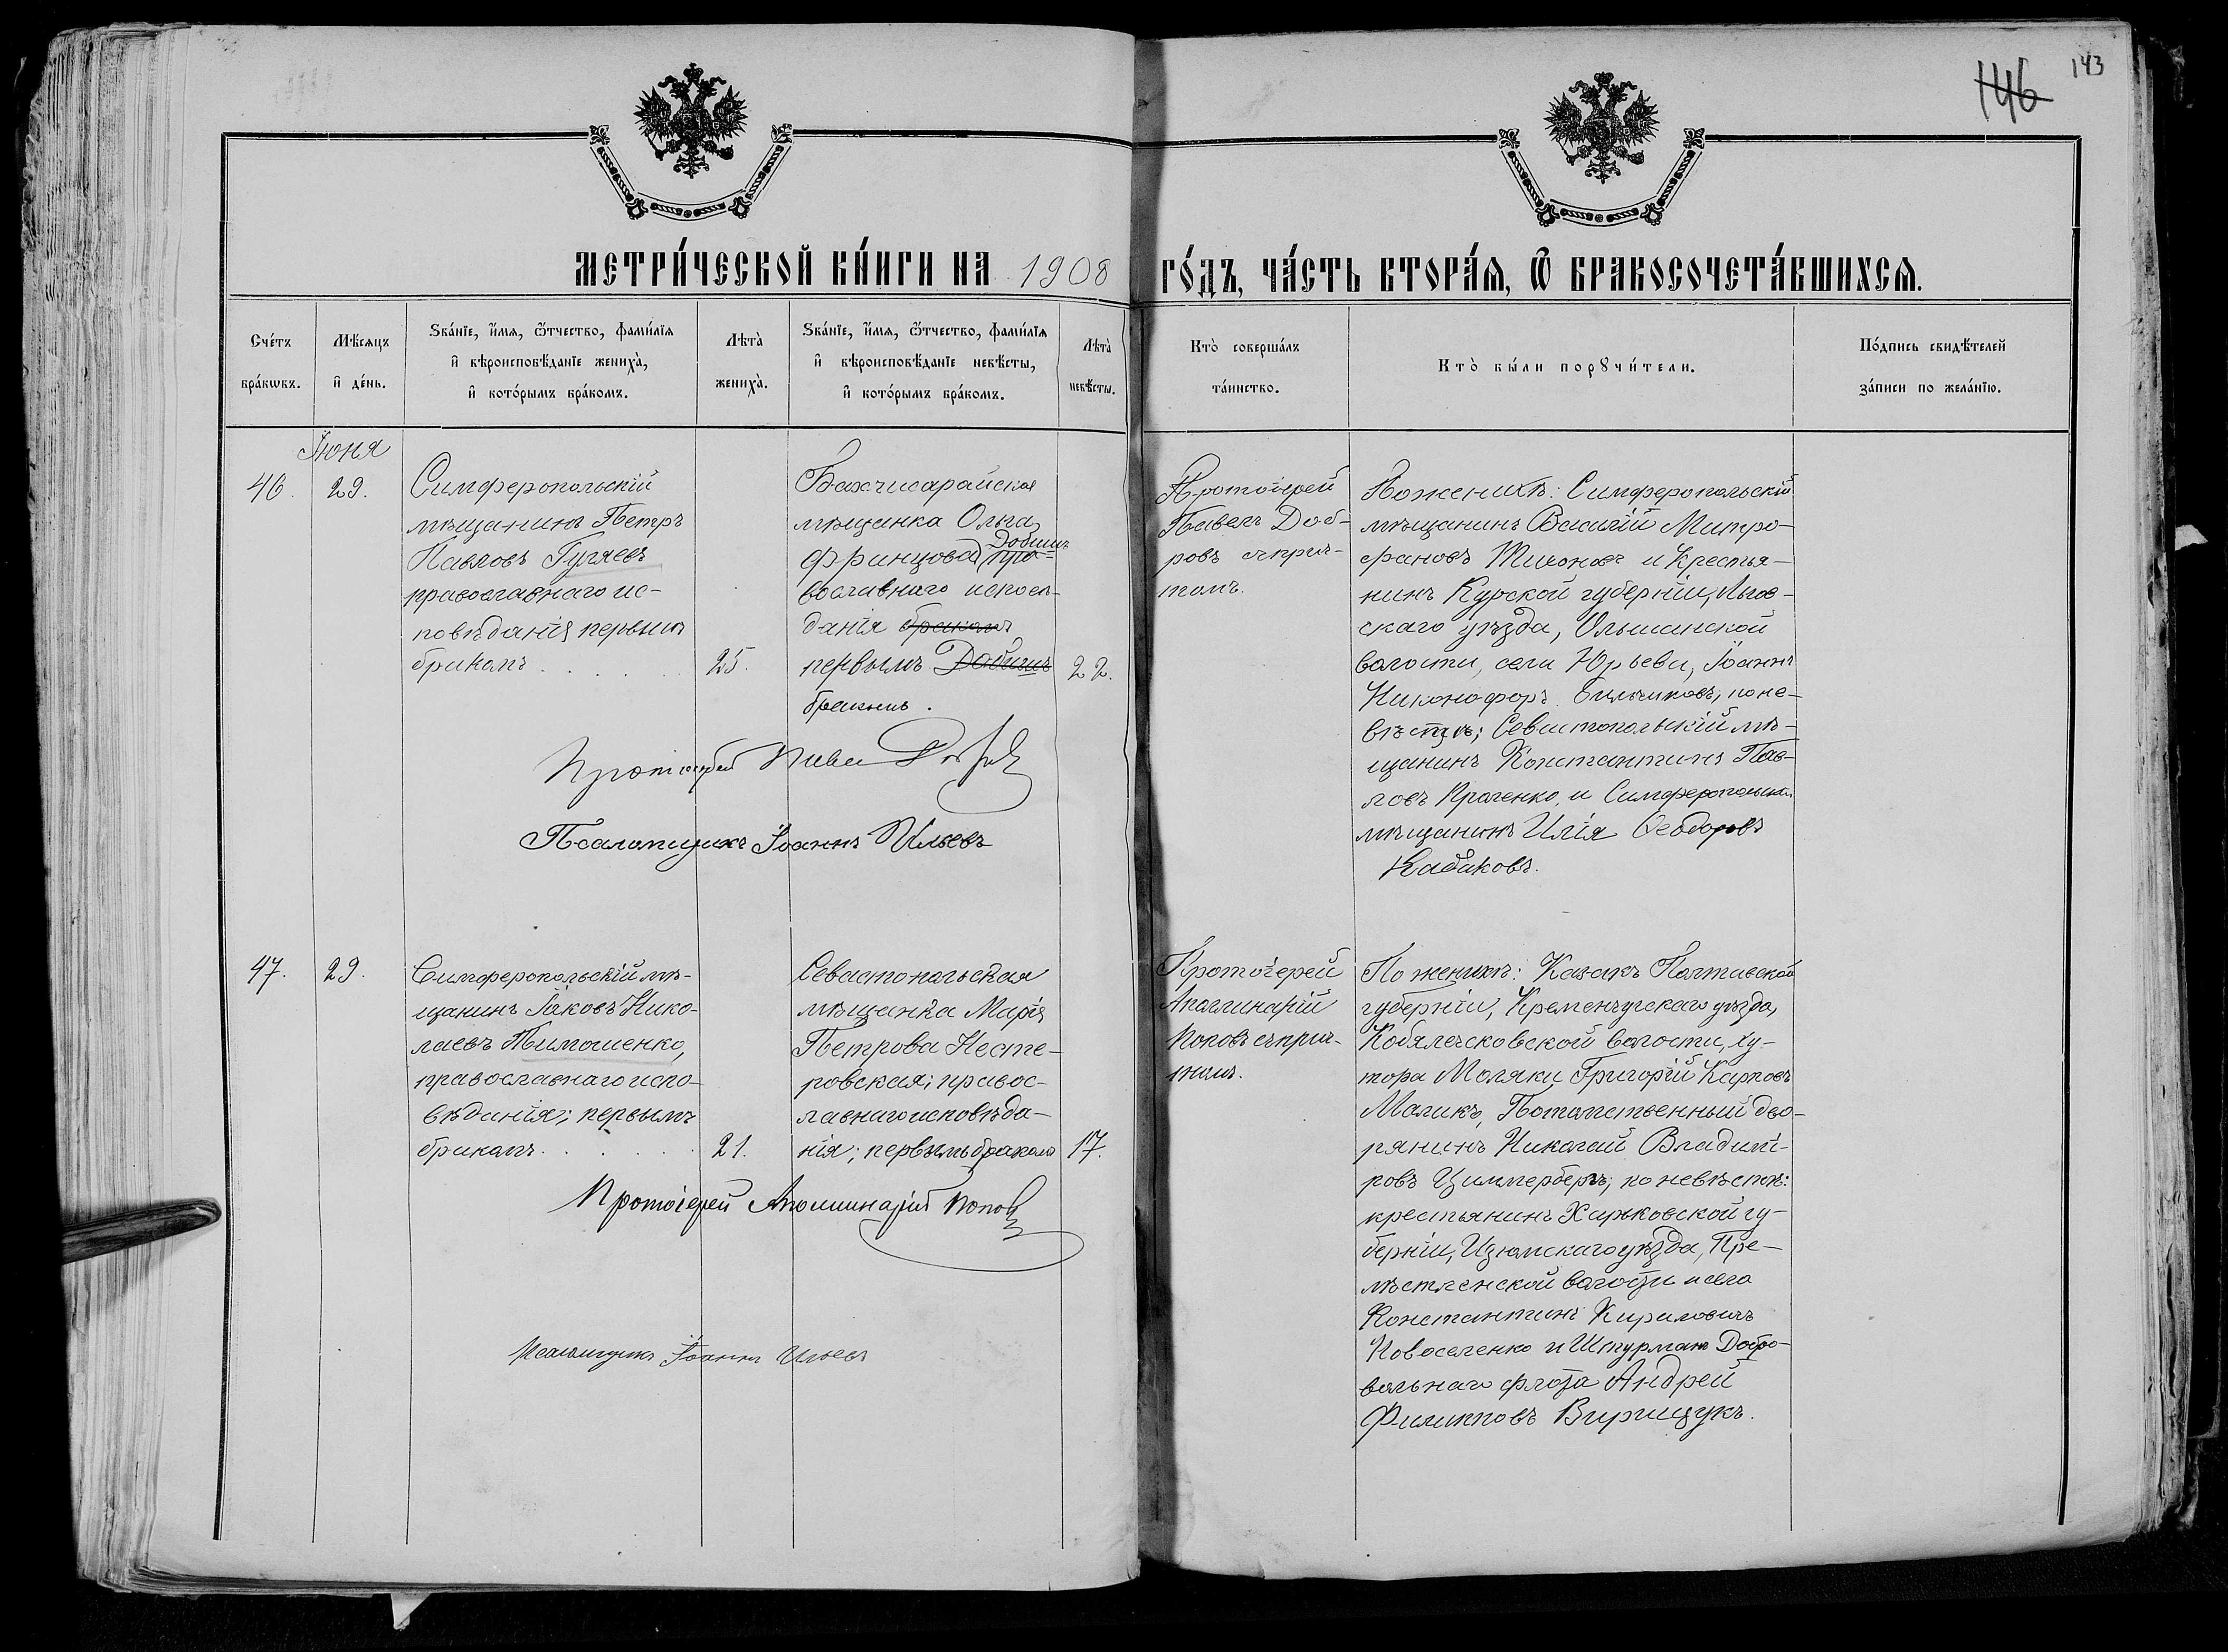 146 143
МЕТРИ́ЧЕСКОЙ КНИ́ГИ НА 1908 ГО́ДЪ, ЧА́СТЬ ВТОРА́Я, Ѿ БРАКОСОЧЕТА́ВШИХСЯ.
Сче́тъ бра́кѡвъ.
Мѣ́сяцъ и҆ де́нь.
Ѕва́нїе, и҆́мя, ѻ҆́тчество, фами́лїя и҆ вѣроисповѣ́данїе жениха̀, и҆ кото́рымъ бра́комъ.
Лѣта̀ жениха̀.
Ѕва́нїе, и҆́мя, ѻ҆́тчество, фами́лїя и҆ вѣроисповѣ́данїе невѣ́сты, и҆ кото́рымъ бра́комъ.
Лѣта̀ невѣ́сты.
Кто̀ соверша́лъ та́инство.
Кто̀ бы́ли порꙋчи́тели.
По́дпись свидѣ́телей за́писи по жела́нїю.
Іюня
46. 29.
Симферопольскій
мѣщанинъ Петръ
Павловъ Гуляевъ
православнаго ис-
повѣданія первымъ
бракомъ
25.
Бахчисарайская
мѣщанка Ольга
Францова пра-
вославнаго исповѣ-
данія бракомъ
первымъ
бракомъ.
22.
Протоіерей
Павелъ Доб-
ровъ съ прич-
томъ.
По женихѣ: Симферопольскій
мѣщанинъ Василій Митро-
фановъ Тихоновъ и крестья-
нинъ Курской губерніи, Льгов-
скаго уѣзда, Ольшанской
волости, села Юрьева, Іоаннъ
по не-
вѣстѣ; Севастопольскій мѣ-
щанинъ Константинъ Пав-
ловъ и
мѣщанинъ Илія Ѳеодоровъ
Кабаковъ.
Протоіерей
Псаломщикъ Іоаннъ Ильевъ
47. 29.
Симферопольскій мѣ-
щанинъ Іаковъ Нико-
лаевъ Тимошенко,
православнаго испо-
вѣданія; первымъ
бракомъ
21.
Севастопольская
мѣщанка Марія
Петрова Несте-
ровская; правос-
лавнаго исповѣда-
нія; первымъ бракомъ
17.
Протоіерей
Аполлинарій
Поповъ съ прич-
томъ.
По женихѣ: Казакъ Полтавской
губерніи, Кременчугскаго уѣзда,
волости, ху-
тора Моляки Григорій Карповъ
Маликъ, Потомственный дво-
рянинъ Николай Владимі-
ровъ Циммербергъ; по невѣстѣ:
крестьянинъ Харьковской гу-
берніи, Изюмскаго уѣзда,
волости и села
Константинъ Кириловичъ
Новоселенко и Штурманъ Добро-
вольнаго флота Андрей
Филипповъ Вирищукъ.
Протоіерей Аполлинарій Поповъ
Псаломщикъ Іоаннъ Ильевъ